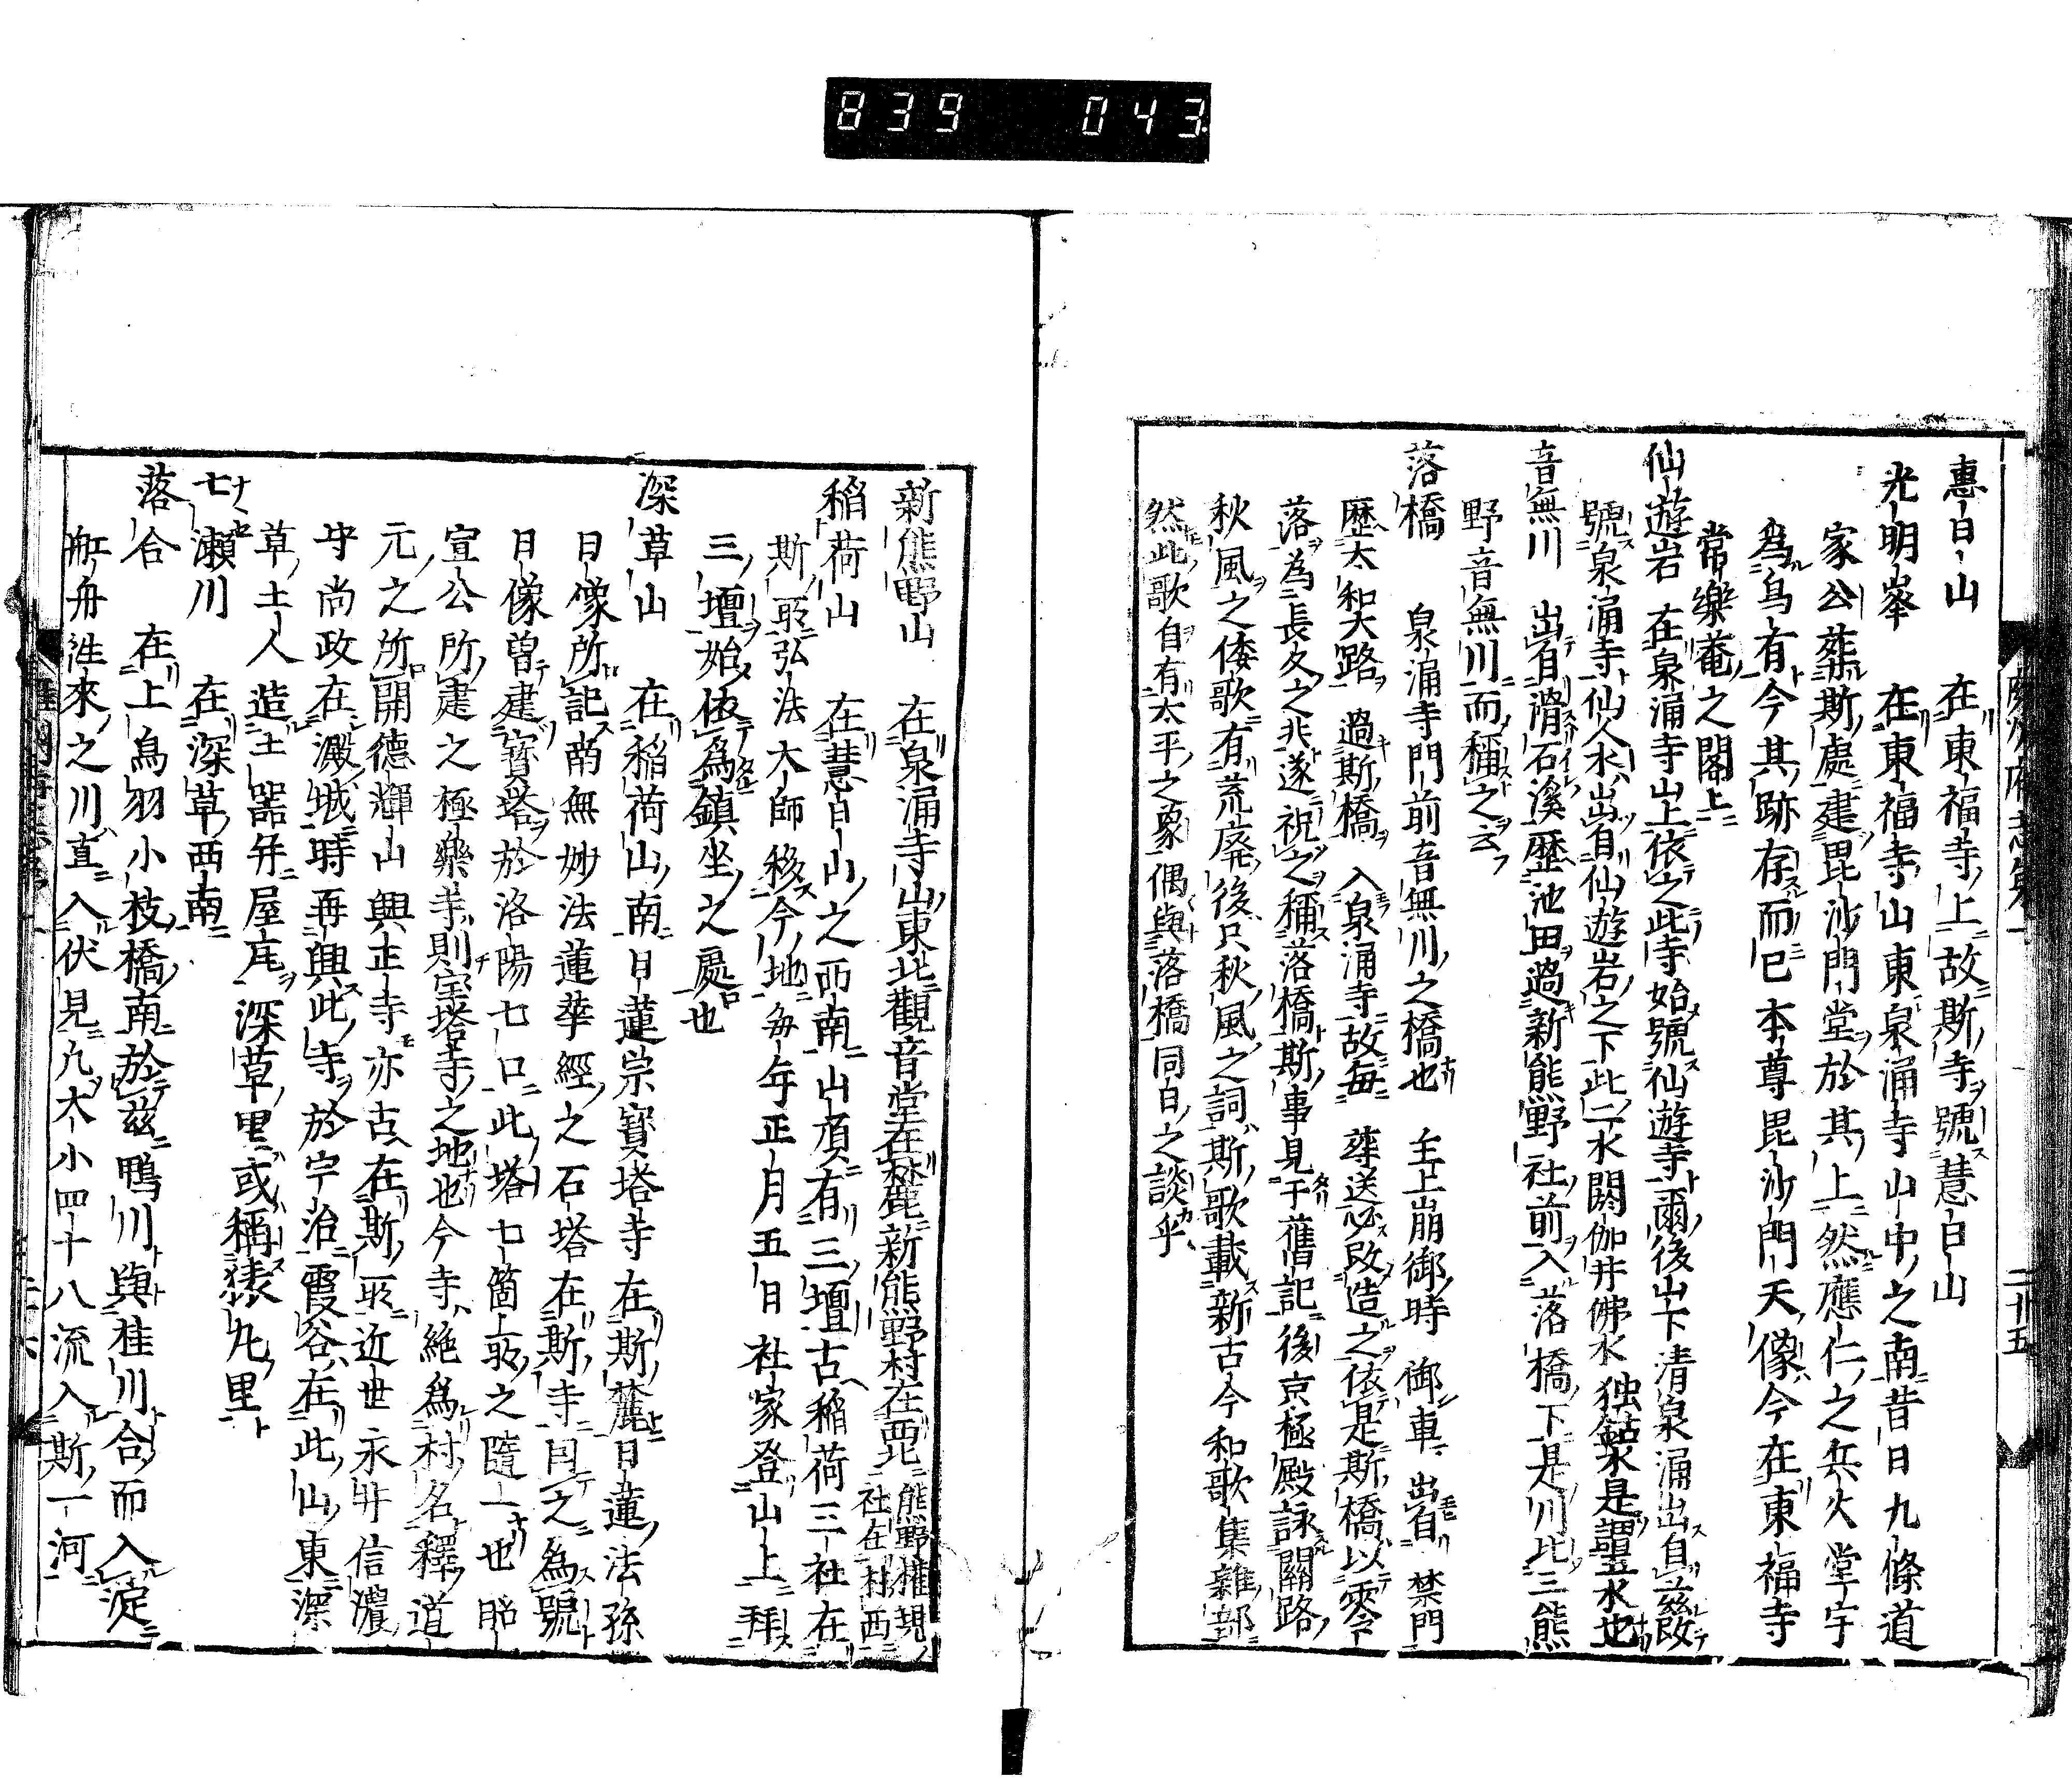 839 043
惠日山 在東福寺上故斯寺號慧日山
光明峯 在東福寺山東泉涌寺山中之南昔日九條道
家公葬斯處建毘沙門堂於其上然應仁之兵火堂宇
爲烏有今其跡存而已本尊毘沙門天像今在東福寺
常樂菴之閣上
仙遊岩 在泉涌寺山上依之此寺始號仙遊寺爾後山下清泉涌出自玆改
號泉涌寺仙人水出自仙遊岩之下此二水閼伽井佛水独鈷水是謂三水也
音無川 出自滑石溪歷池田過新熊野社前入落橋下是川比三熊
野音無川而稱之云
落橋 泉涌寺門前音無川之橋也 主上崩御時 御車出自禁門
歷大和大路過斯橋入泉涌寺故每 葬送必改造之依是斯橋以零
落爲長久之兆遂祝之稱落橋斯事見于舊記後京極殿詠關路
秋風之倭歌有荒廃後只秋風之詞斯歌載新古今和歌集雜部
然此歌自有太平之象偶與落橋同日之談乎
二十五
新熊野山 在泉涌寺山東北觀音堂在麓新熊野村在西北 熊野權現
社在村西
稲荷山 在慧日山之西南山頂有三壇古稲荷三社在
斯耴弘法大師移今地每年正月五日社家登山上拜
三壇始依爲鎮坐之處也
深草山 在稲荷山南日蓮宗寶塔寺在斯麓日蓮法孫
日像所記南無妙法蓮華經之石塔在斯寺因之爲號
日像曽建寶塔於洛陽七口此塔七箇上耴之隨一也昭
宣公所建之極樂寺則宝塔寺之地也今寺絶爲村名釋道
元之所開德輝山興正寺亦古在斯耴近世永井信濃
守尚政在澱城時再興此寺於宇治霞谷在此山東深
草土人造土器并屋瓦深草里或稱㺃丸里
七瀬川 在深草西南
落合 在上鳥羽小枝橋南於茲鴨川與桂川合而入淀
舡舟往來之川直入伏見凡大小四十八流入斯一河